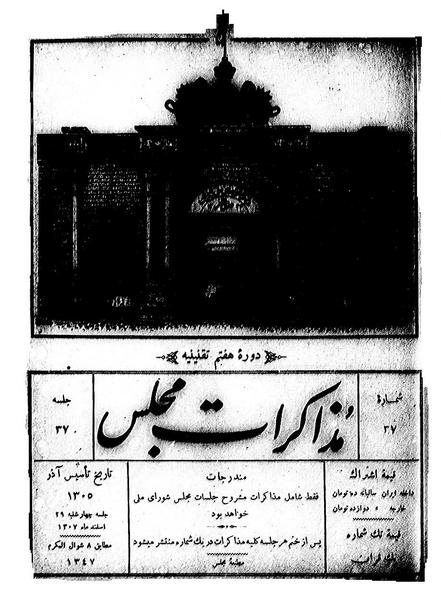 دورهٔ هفتم تقنینیه
شمارهٔ
۳۷
مذاکرات مجلس
جلسه
۳۷
قیمة اشتراك
داخله ایران سالیانه ده تومان
خارجه » دوازده تومان
قیمة تك شماره
يك قران
مندرجات
فقط شامل مذاکرات مشروح جلسات مجلس شورای ملی
خواهد بود
پس از ختم هر جلسه کلیه مذاکرات در يك شماره منتشر میشود
مطبعهٔ مجلس
تاریخ تأسیس آذر
۱۳۰۵
جلسه چهارشنبه ۲۹
اسفند ماه ۱۳۰۷
مطابق ۸ شوال المکرم
۱۳۴۷